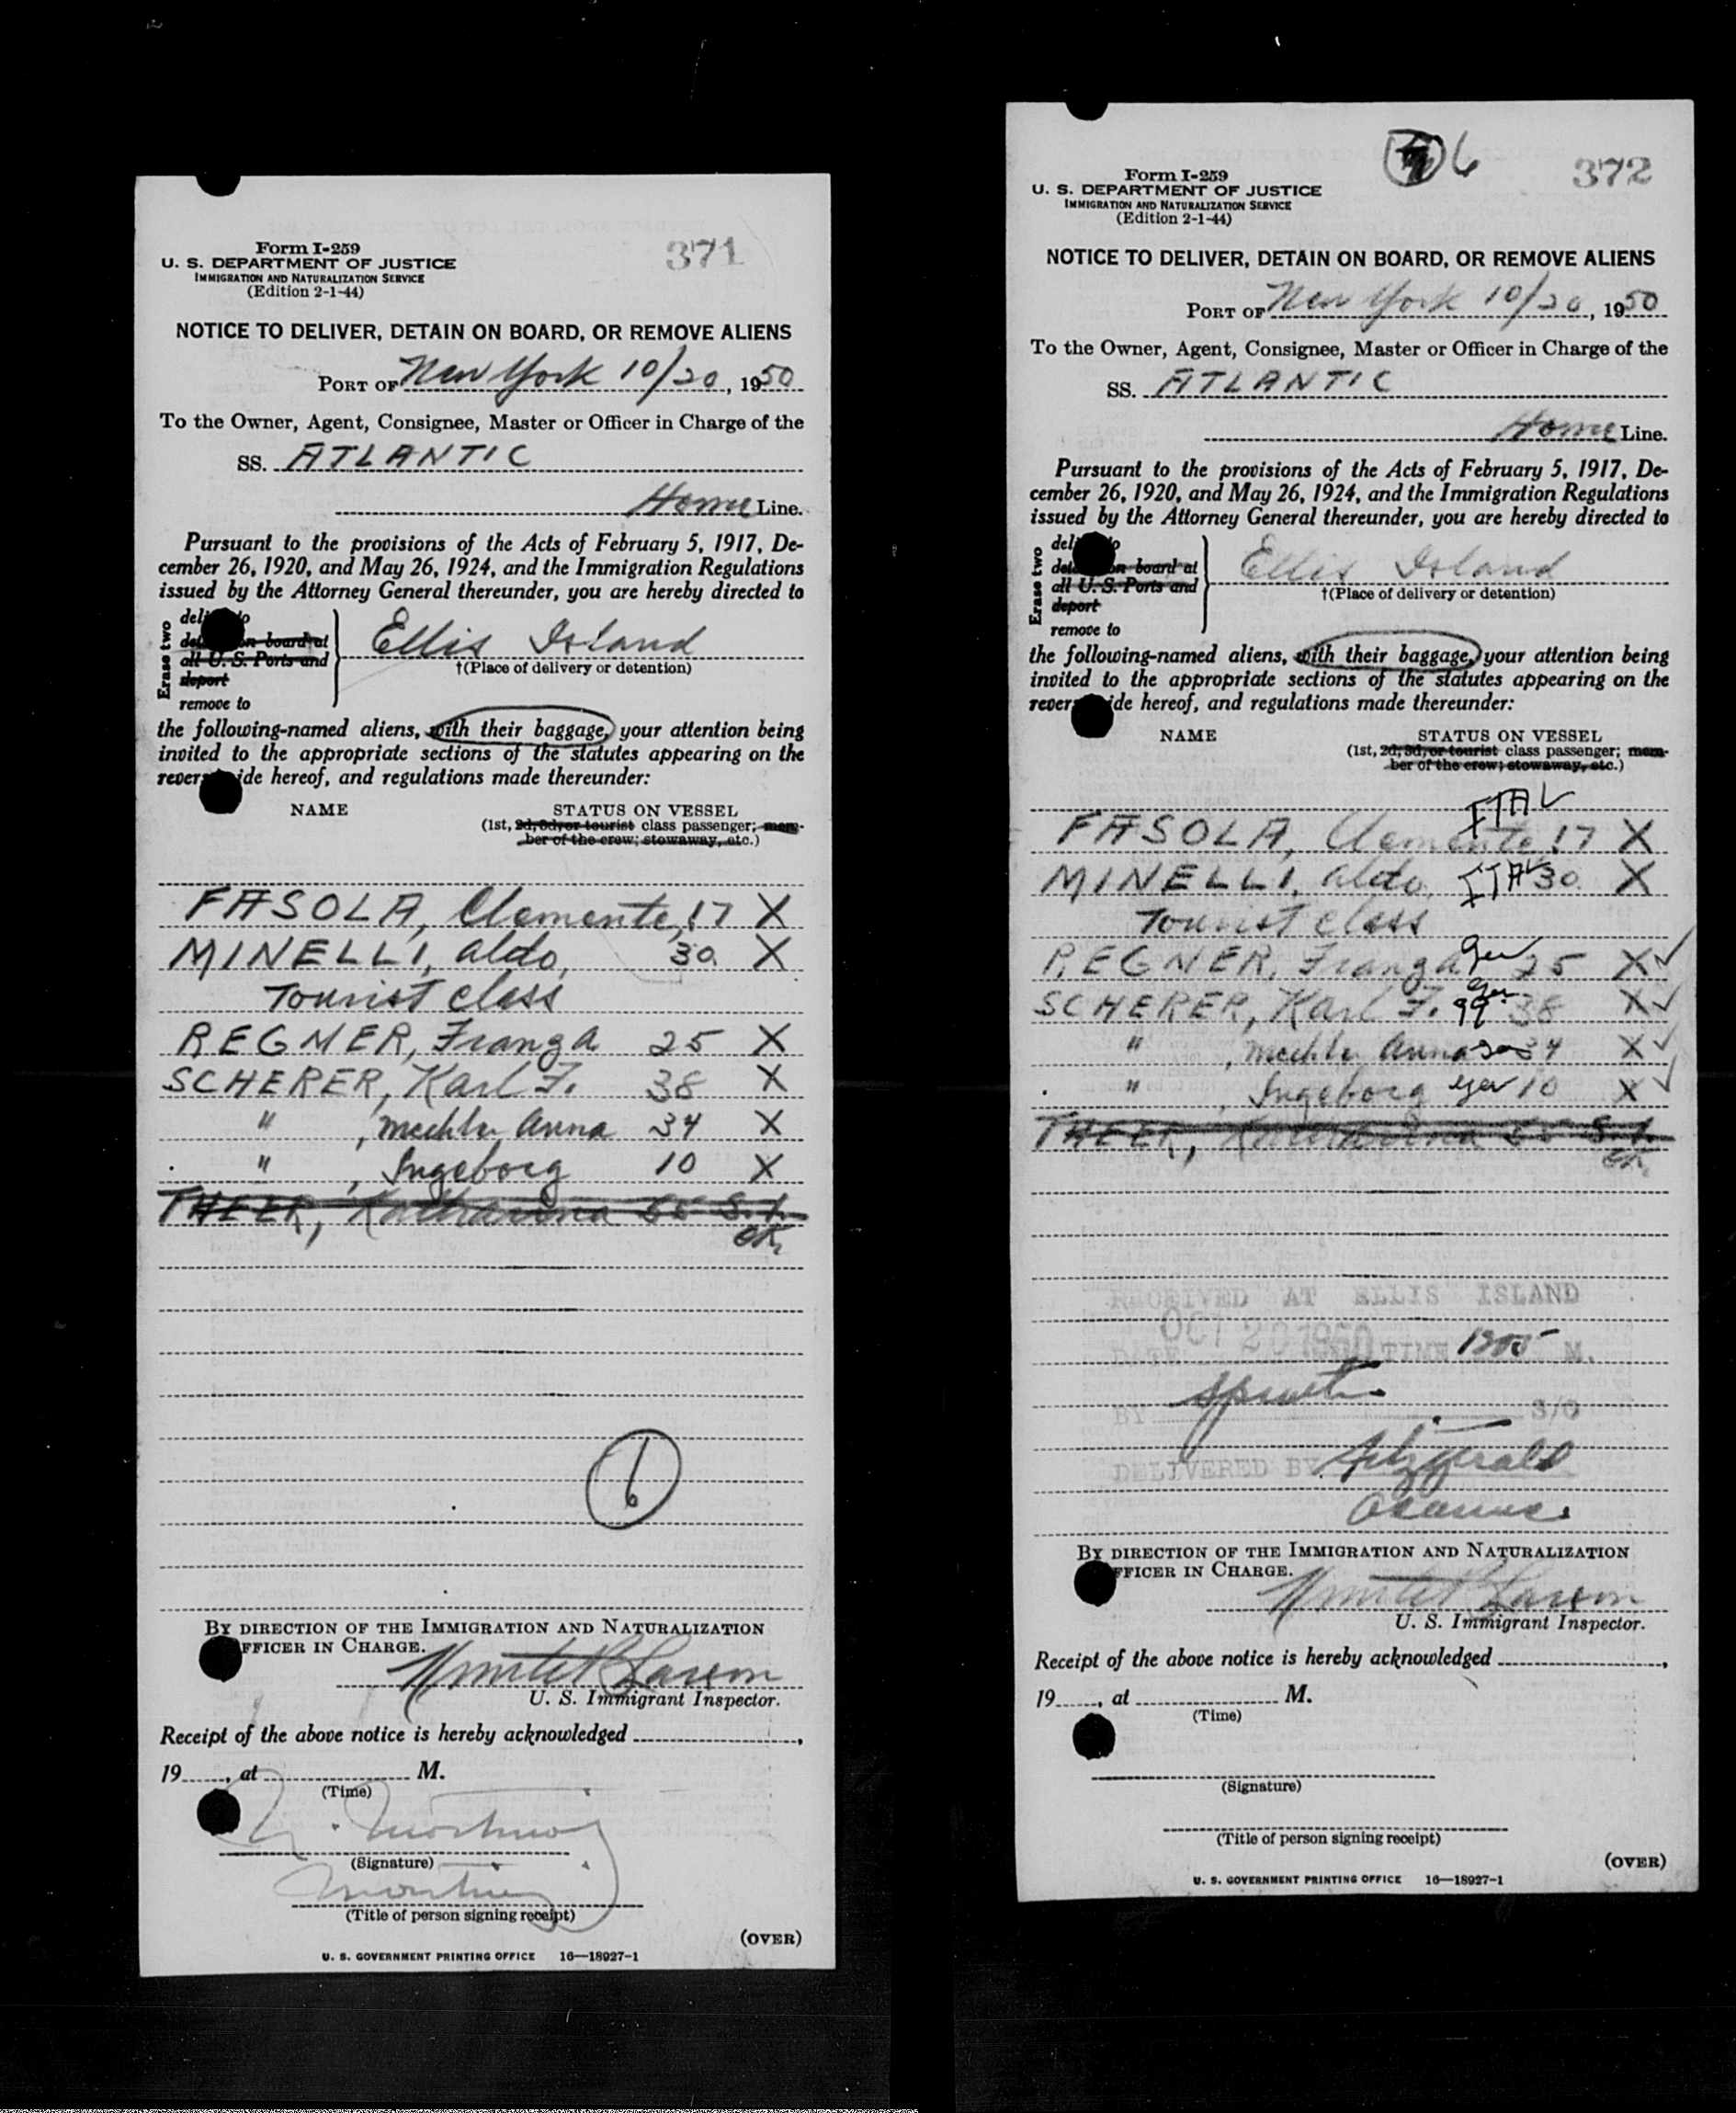 371
Form I-259
U. S. DEPARTMENT OF JUSTICE
IMMIGRATION AND NATURALIZATION SERVICE
(Edition 2-1-44)
NOTICE TO DELIVER, DETAIN ON BOARD, OR REMOVE ALIENS
PORT OF New York 10/20, 1950
To the Owner, Agent, Consignee, Master or Officer in Charge of the
SS. ATLANTIC
Home Line.
Pursuant to the provisions of the Acts of February 5, 1917, De-
cember 26, 1920, and May 26, 1924, and the Immigration Regulations
issued by the Attorney General thereunder, you are hereby directed to
Erase two
on board at
all U. S. Ports and
deport
remove to
Ellis Island
†(Place of delivery or detention)
the following-named aliens, with their baggage, your attention being
invited to the appropriate sections of the statutes appearing on the
hereof, and regulations made thereunder:
NAME STATUS ON VESSEL
(1st, 2d, 3d, or tourist class passenger; mem-
ber of the crew; stowaway, etc.)
FASOLA, Clemente, 17 X
MINELLI, Aldo, 30 X
Tourist class
REGNER, Franga 25 X
SCHERER, Karl F. 38 X
" , Anna 34 X
" , Ingeborg 10 X
THEER, Katharina 55 S.I.
OK
6
BY DIRECTION OF THE IMMIGRATION AND NATURALIZATION
OFFICER IN CHARGE.
Larson
U. S. Immigrant Inspector.
Receipt of the above notice is hereby acknowledged
19 , at M.
(Time)
(Signature)
(Title of person signing receipt)
(OVER)
U. S. GOVERNMENT PRINTING OFFICE 16—18927-1
6 372
Form I-259
U. S. DEPARTMENT OF JUSTICE
IMMIGRATION AND NATURALIZATION SERVICE
(Edition 2-1-44)
NOTICE TO DELIVER, DETAIN ON BOARD, OR REMOVE ALIENS
PORT OF New York 10/20, 1950
To the Owner, Agent, Consignee, Master or Officer in Charge of the
SS. ATLANTIC
Home Line.
Pursuant to the provisions of the Acts of February 5, 1917, De-
cember 26, 1920, and May 26, 1924, and the Immigration Regulations
issued by the Attorney General thereunder, you are hereby directed to
Erase two
on board at
all U. S. Ports and
deport
remove to
Ellis Island
†(Place of delivery or detention)
the following-named aliens, with their baggage, your attention being
invited to the appropriate sections of the statutes appearing on the
hereof, and regulations made thereunder:
NAME STATUS ON VESSEL
(1st, 2d, 3d, or tourist class passenger; mem-
ber of the crew; stowaway, etc.)
ITAL
FASOLA, Clemente, 17 X
MINELLI, Aldo, ITAL 30 X
Tourist class
REGNER, Franga Ger 25 X ✓
SCHERER, Karl F. Ger 38 X ✓
" , Anna Ger 34 X ✓
" , Ingeborg Ger 10 X ✓
THEER, Katharina 55 S.I.
OK
RECEIVED AT ELLIS ISLAND
OCT 20 1950
DATE TIME 1305 M.
BY S/O
DELIVERED BY Fitzgerald
BY DIRECTION OF THE IMMIGRATION AND NATURALIZATION
OFFICER IN CHARGE.
Larson
U. S. Immigrant Inspector.
Receipt of the above notice is hereby acknowledged ,
19 , at M.
(Time)
(Signature)
(Title of person signing receipt)
(OVER)
U. S. GOVERNMENT PRINTING OFFICE 16—18927-1